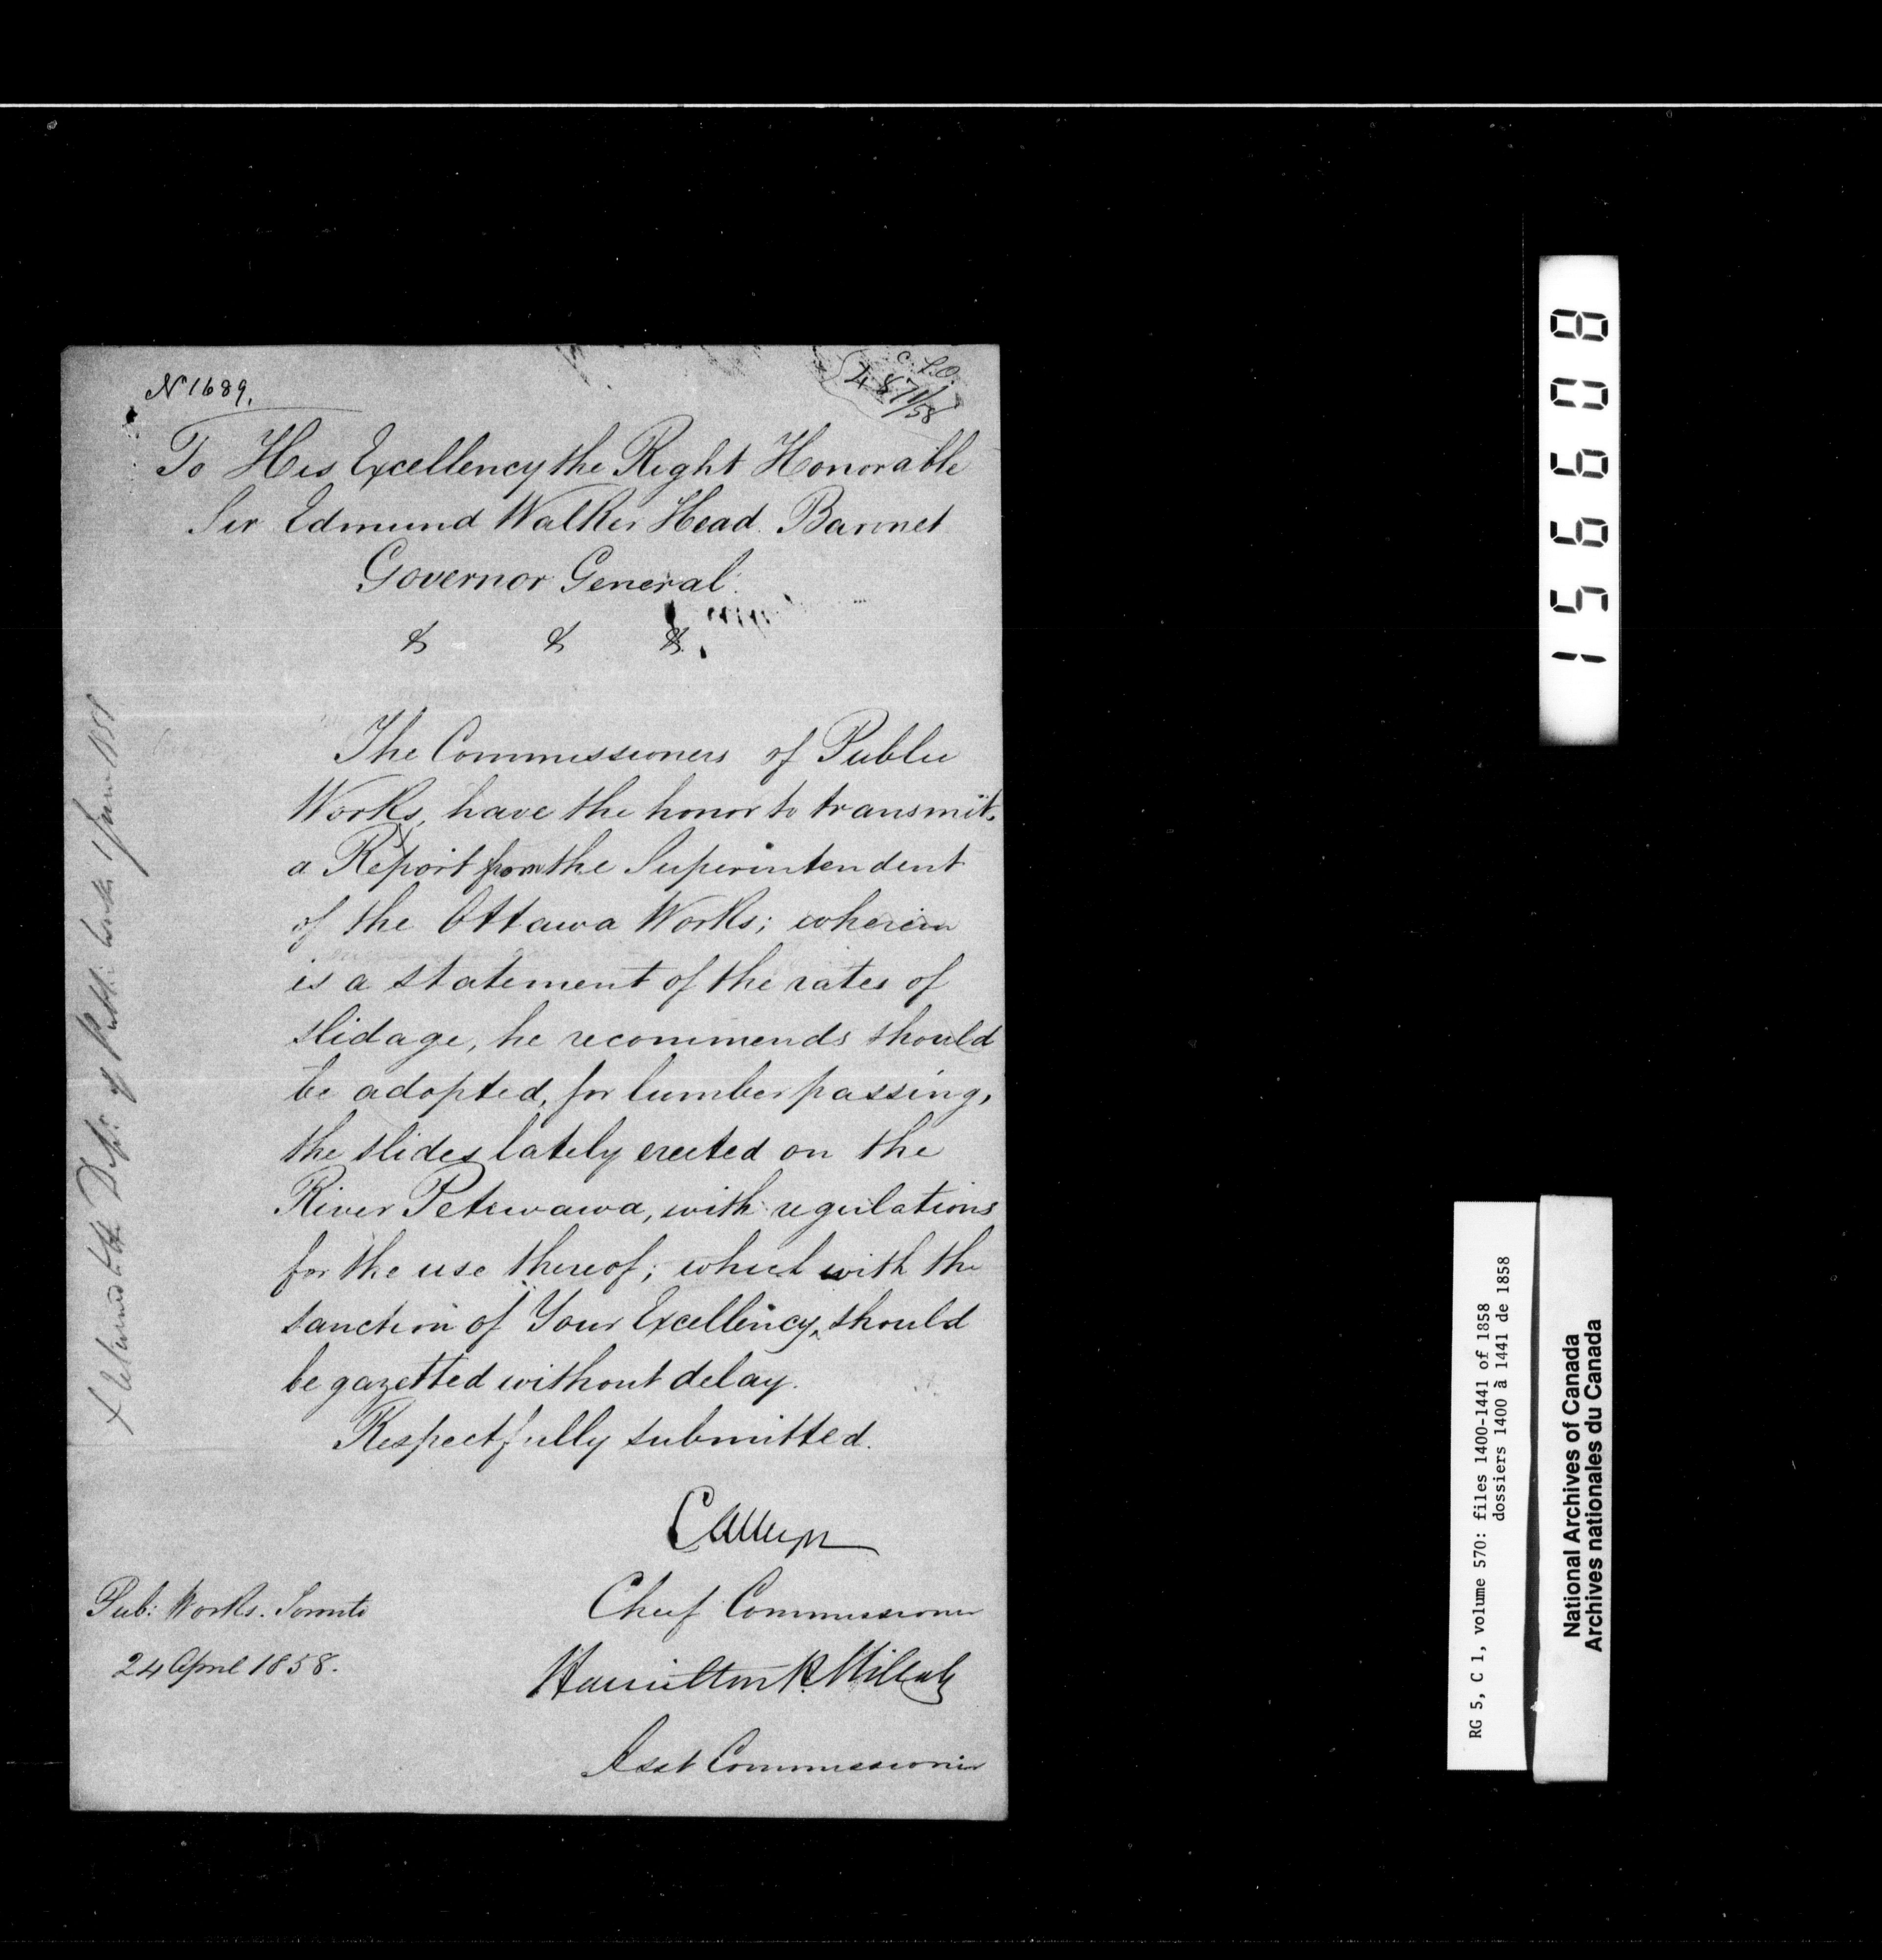 N° 1689.
C. S. O.
487/58
To His Excellency the Right Honorable
Sir Edmund Walker Head Baronet
Governor General.
& & &.
The Commissioners of Public
Works, have the honor to transmit,
a Report from the Superintendent
of the Ottawa Works; wherein
is a statement of the rates of
slidage, he recommends should
be adopted, for lumber passing,
the slides lately erected on the
River Petewawa, with regulations
for the use thereof; which with the
sanction of Your Excellency, should
be gazetted without delay.
Respectfully submitted.
Chief Commissioner
Hamilton H Killaly
Asst Commissioner
Pub: Works. Toronto
24 April 1858.
x Returned to the Dept: of Public Works June 1858
156608
RG 5, C 1, volume 570: files 1400-1441 of 1858
dossiers 1400 à 1441 de 1858
National Archives of Canada
Archives nationales du Canada